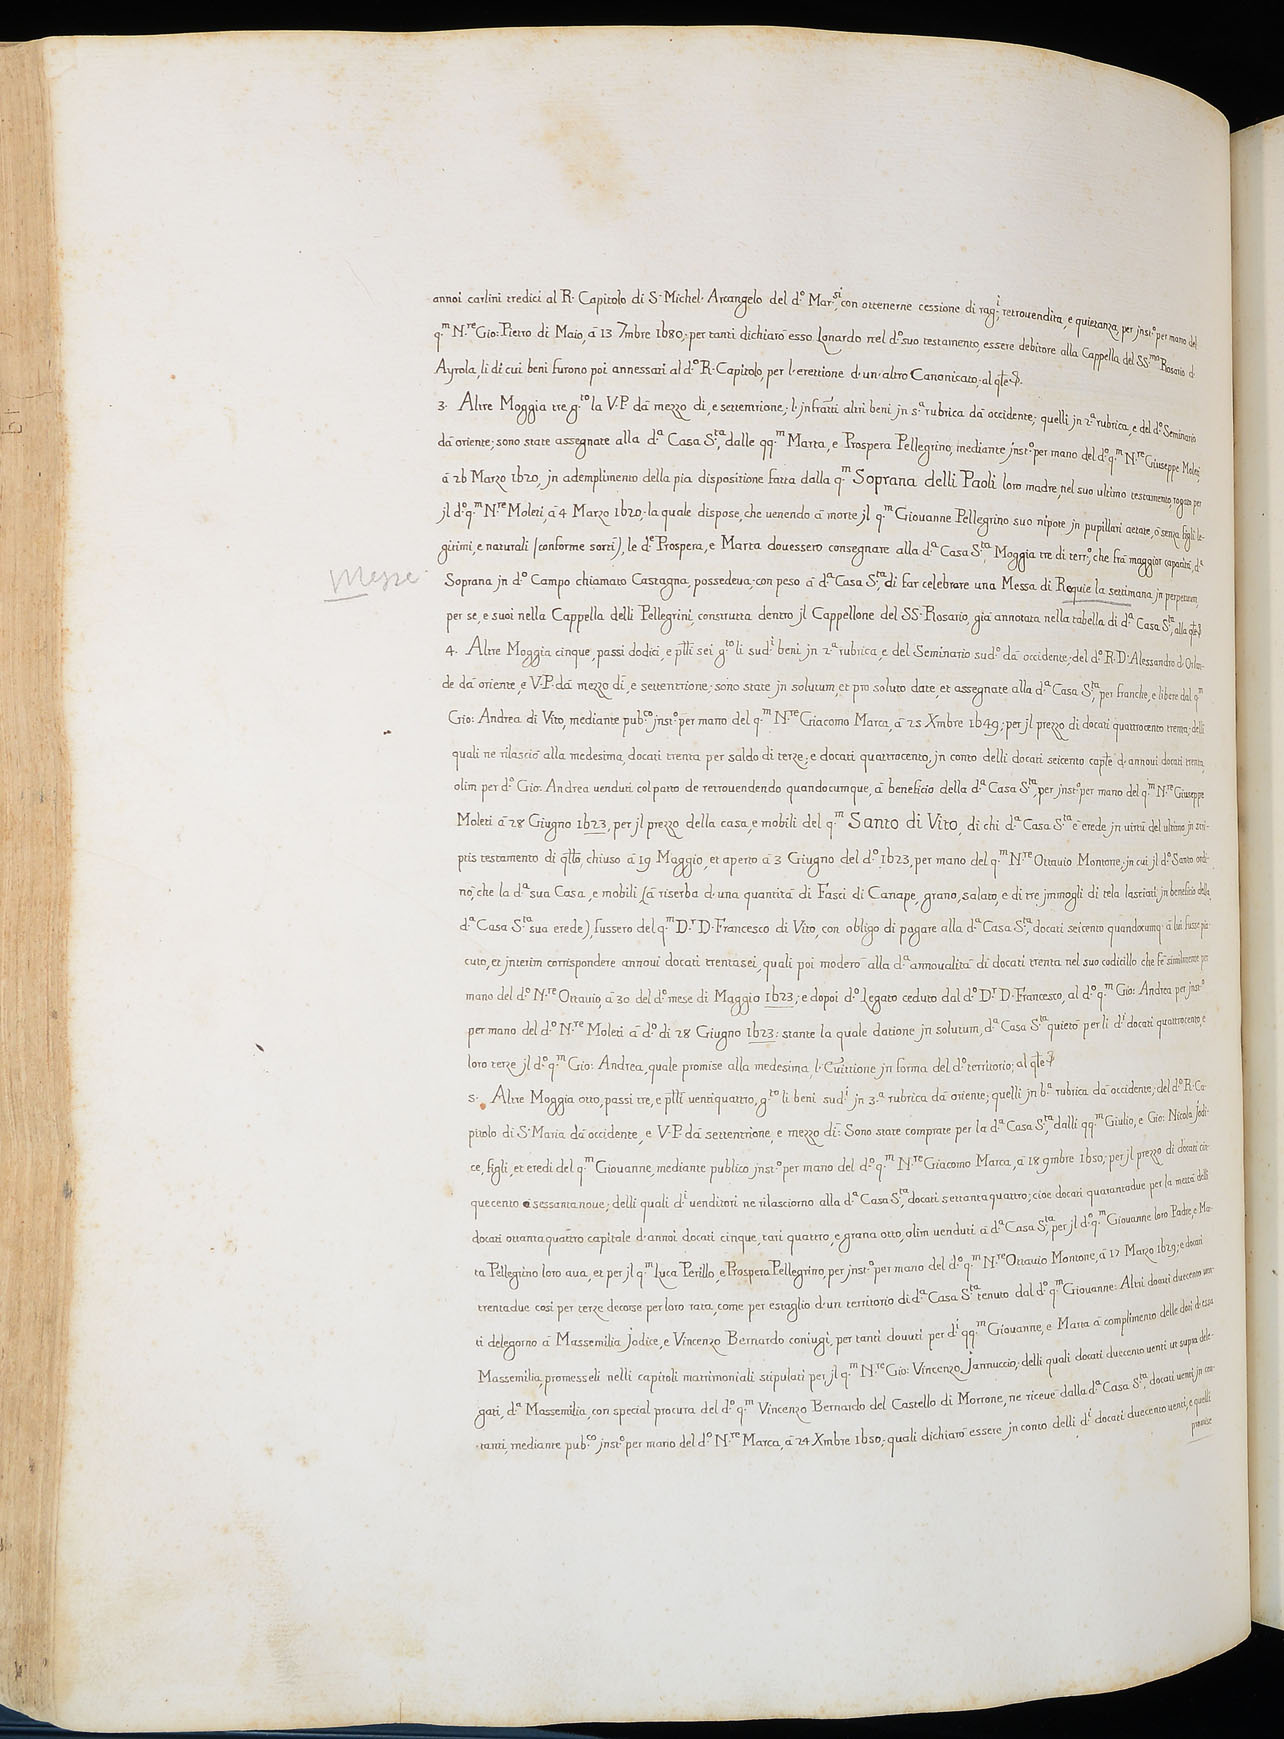 annoi carlini tredici al R. Capitolo di S. Michel. Arcangelo del d.º Mar.si, con ottenerne cessione di rag.i, retrouendita, e quietanza, per jnst.º per mano del
q.m N.re Gio: Pietro di Maio, à 13 7mbre 1680; per tanti dichiarò esso Lonardo nel d.º suo testamento, essere debitore alla Cappella del SS.mo Rosario d.
Ayrola, li di cui beni furono poi annessati al d.º R. Capitolo, per l'erettione d'un'altro Canonicato; al qle
3. Altre Moggia tre g.to la V.P. dà mezzo di, e settentrione; l'jnfratti altri beni jn s.a rubrica dà occidente; quelli jn 2.a rubrica, e del d.º Seminario
dà oriente; sono state assegnate alla d.a Casa S.ta, dalle qq.m Marta, e Prospera Pellegrino, mediante jnst.º per mano del d.º q.m N.re Giuseppe Moleti,
à 26 Marzo 1620, jn adempimento della pia dispositione fatta dalla q.m Soprana delli Paoli loro madre, nel suo ultimo testamento, rogato per
jl d.º q.m N.re Moleti, à 4 Marzo 1620; la quale dispose, che uenendo à morte jl q.m Giouanne Pellegrino suo nipote jn pupillari aetate, ò senza figli le-
gitimi, e naturali (conforme sortì), le d.e Prospera, e Marta douessero consegnare alla d.a Casa S.ta, Moggia tre di terr.º, che frà maggior capacità, d.a
Messe
Soprana jn d.º Campo chiamato Castagna, possedeua; con peso à d.a Casa S.ta, di far celebrare una Messa di Requie la settimana jn perpetuum,
per se, e suoi nella Cappella delli Pellegrini, construtta dentro jl Cappellone del SS. Rosario, già annotata nella tabella di d.a Casa S.ta, alla qle
4. Altre Moggia cinque, passi dodici, e ptti sei g.to li sud.i beni jn 2.a rubrica, e del Seminario sud.º dà occidente; del d.º R. D. Alessandro d'Orlan-
de dà oriente, e V.P. dà mezzo dì, e settentrione; sono state jn solutum, et pro soluto date, et assegnate alla d.a Casa S.ta, per franche, e libere dal q.m
Gio: Andrea di Vito, mediante pub.co jnst.º per mano del q.m N.re Giacomo Marca, à 25 Xmbre 1649; per jl prezzo di docati quattrocento trenta; delli
quali ne rilasciò alla medesima, docati trenta per saldo di terze; e docati quattrocento, jn conto delli docati seicento caple d'annoui docati trenta,
olim per d.º Gio: Andrea uenduti col patto de retrouendendo quandocumque, à beneficio della d.a Casa S.ta, per jnst.º per mano del q.m N.re Giuseppe
Moleti à 28 Giugno 1623, per jl prezzo della casa, e mobili del q.m Santo di Vito, di chi d.a Casa S.ta è erede jn uirtù del ultimo jn scri-
ptis testamento di qllo, chiuso à 19 Maggio, et aperto à 3 Giugno del d.º 1623, per mano del q.m N.re Ottauio Montone; jn cui jl d.º Santo ordi-
nò, che la d.a sua Casa, e mobili (à riserba d'una quantità di Fasci di Canape, grano, salato, e di tre jmmogli di tela lasciati, jn beneficio della
d.a Casa S.ta sua erede), fussero del q.m D.r D. Francesco di Vito, con obligo di pagare alla d.a Casa S.ta, docati seicento quandocumq. à lui fusse pia-
ciuto, et jnterim corrispondere annoui docati trentasei, quali poi moderò alla d.a annoualità di docati trenta nel suo codicillo che fè similmente per
mano del d.º N.re Ottauio, à 30 del d.º mese di Maggio 1623; e dopoi d.º Legato ceduto dal d.º D.r D. Francesco, al d.º q.m Gio: Andrea per jnst.º
per mano del d.º N.re Moleti à d.º di 28 Giugno 1623: stante la quale datione jn solutum, d.a Casa S.ta quietò per li d.i docati quattrocento, e
loro terze jl d.º q.m Gio: Andrea, quale promise alla medesima, l'Euittione jn forma del d.º territorio; al qle
5. Altre Moggia otto, passi tre, e ptti uentiquattro, g.to li beni sud.i jn 3.a rubrica dà oriente; quelli jn 6.a rubrica dà occidente; del d.º R. Ca-
pitolo di S. Maria dà occidente, e V.P. dà settentrione, e mezzo dì: Sono state comprate per la d.a Casa S.ta, dalli qq.m Giulio, e Gio: Nicola Jodi-
ce, figli, et eredi del q.m Giouanne, mediante publico jnst.º per mano del d.º q.m N.re Giacomo Marca, à 18 9mbre 1650; per jl prezzo di docati cin-
quecento e sessantanoue; delli quali d.i uenditori ne rilasciorno alla d.a Casa S.ta, docati settantaquattro; cioè docati quarantadue per la metà delli
docati ottantaquattro capitale d'annoi docati cinque, tarì quattro, e grana otto, olim uenduti à d.a Casa S.ta, per jl d.º q.m Giouanne loro Padre, e Mar-
ta Pellegrino loro aua, et per jl q.m Luca Perillo, e Prospera Pellegrino, per jnst.º per mano del d.º q.m N.re Ottauio Montone, à 17 Marzo 1629; e docati
trentadue così per terze decorse per loro rata, come per estaglio d'un territorio di d.a Casa S.ta tenuto dal d.º q.m Giouanne: Altri docati duecento uen-
ti delegorno à Massemilia Jodice, e Vincenzo Bernardo coniugi, per tanti douuti per d.i qq.m Giouanne, e Marta à complimento delle doti d'essa
Massemilia, promesseli nelli capitoli matrimoniali stipulati per jl q.m N.re Gio: Vincenzo Jannuccio; delli quali docati duecento uenti ut supra dele-
gati, d.a Massemilia, con special procura del d.º q.m Vincenzo Bernardo del Castello di Morrone, ne riceuè dalla d.a Casa S.ta, docati uenti jn con-
tanti, mediante pub.co jnst.º per mano del d.º N.re Marca, à 24 Xmbre 1650; quali dichiarò essere jn conto delli d.i docati duecento uenti, e quelli
promise